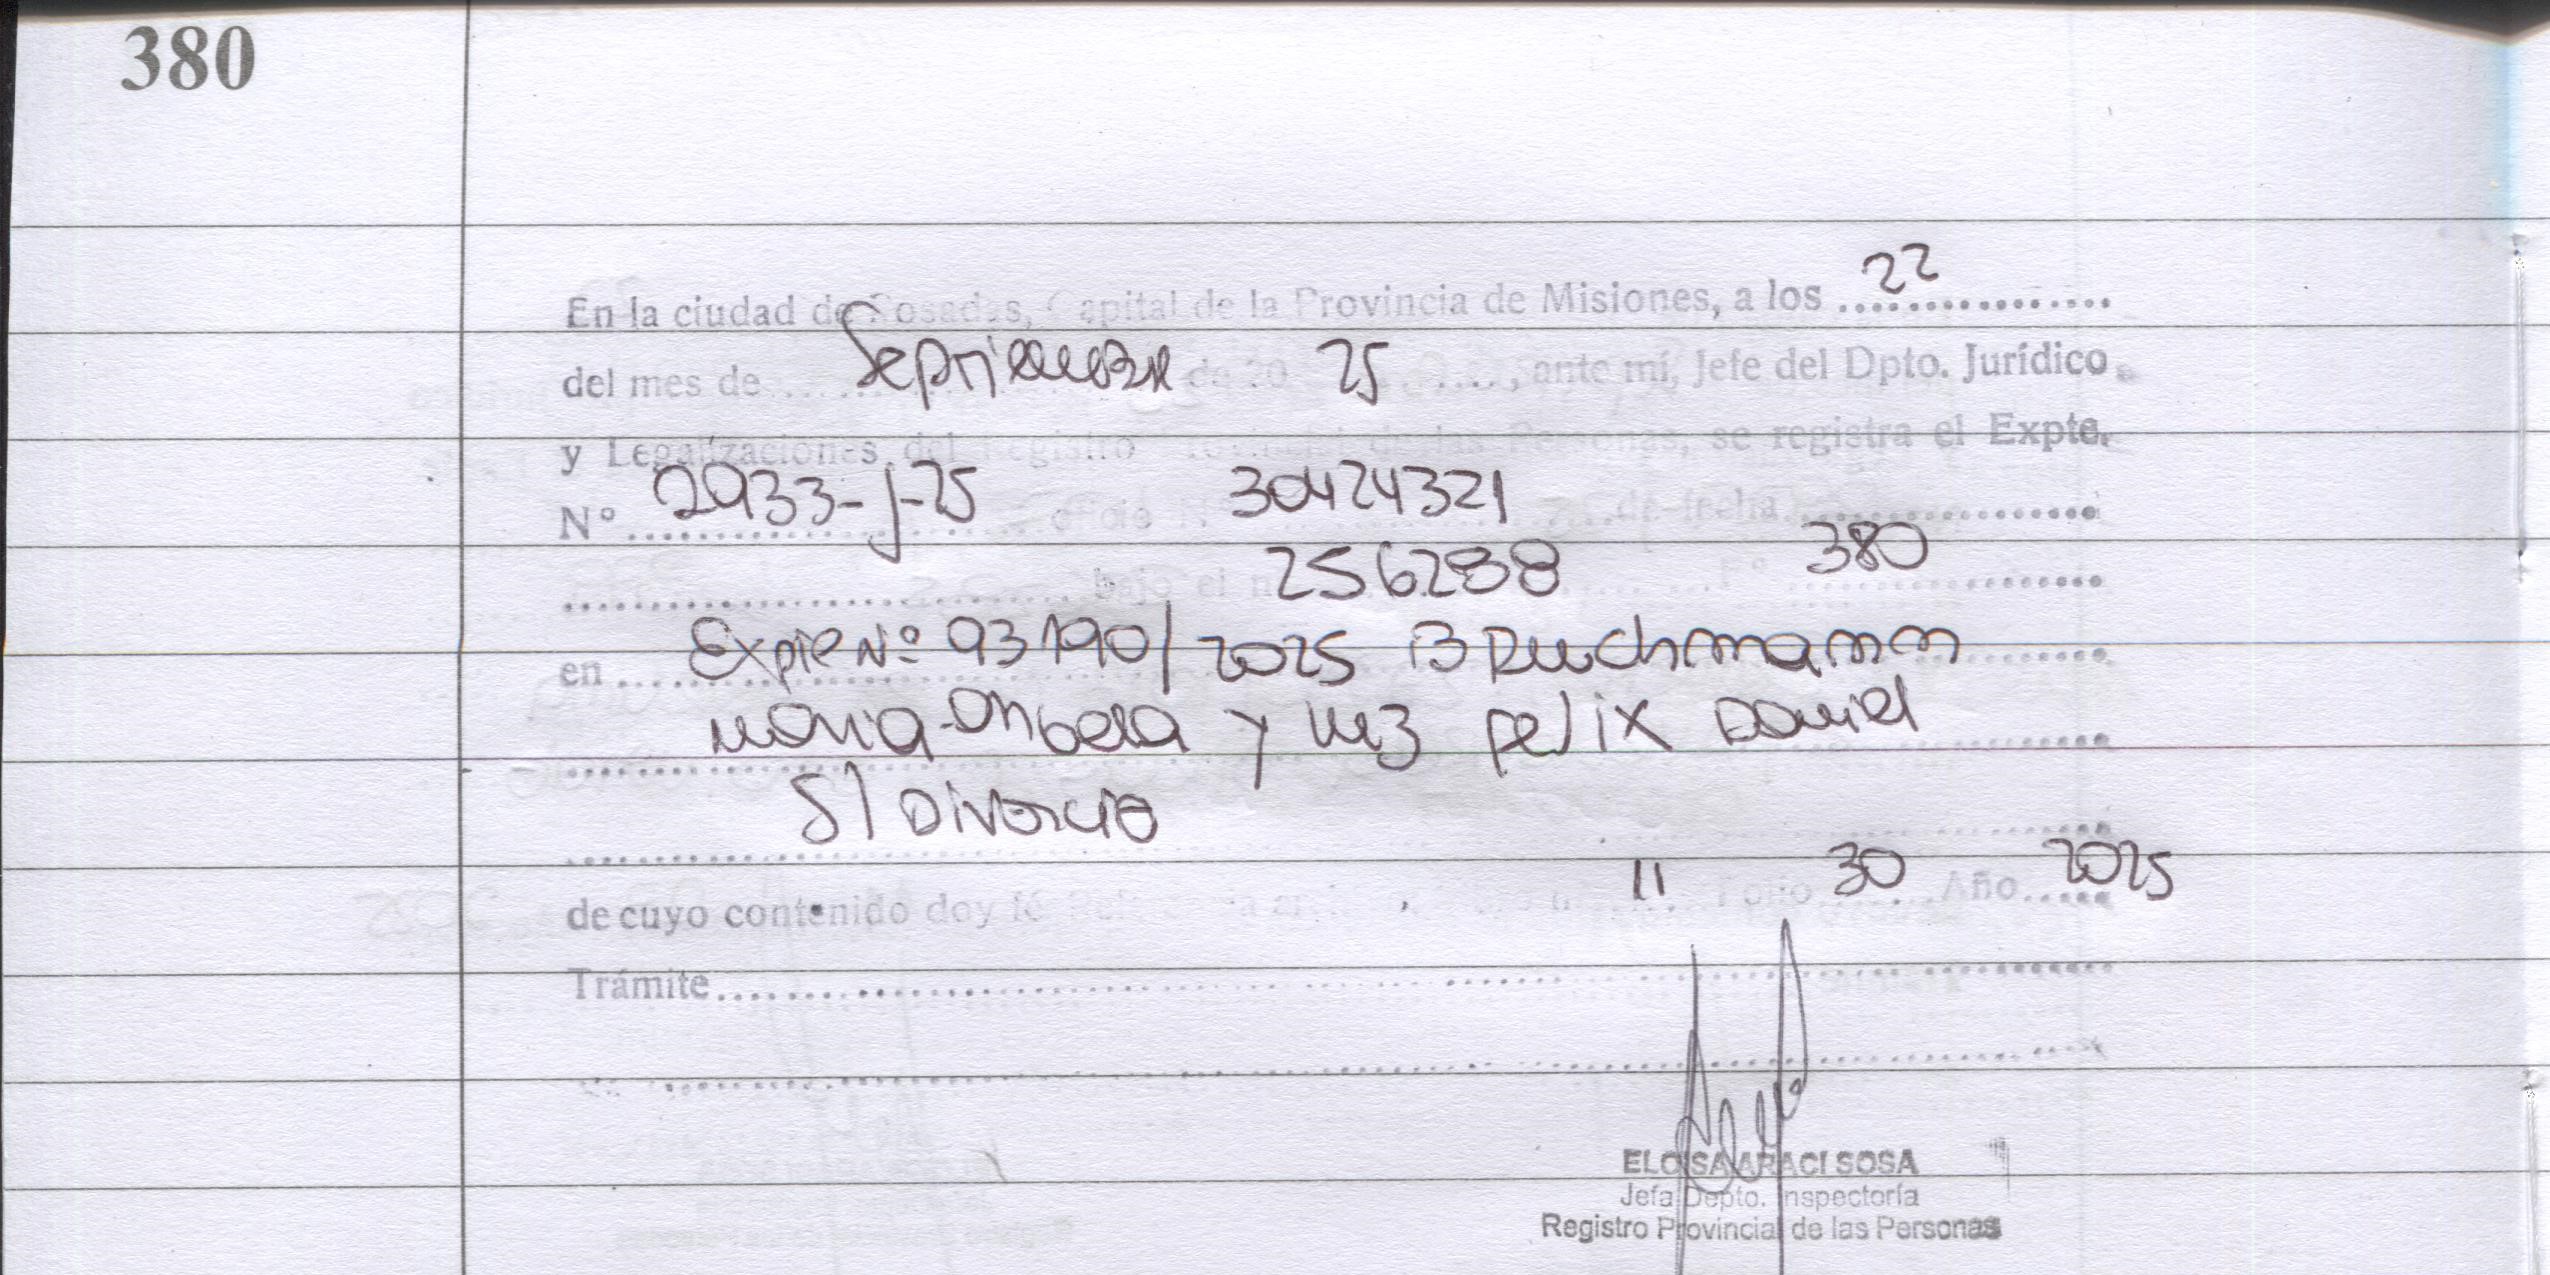 380
En la ciudad de Posadas, Capital de la Provincia de Misiones, a los 22
del mes de Septiembre de 20 25, ante mí, Jefe del Dpto. Jurídico
y Legalizaciones del Registro Provincial de las Personas, se registra el Expte.
Nº 2933-J-25 oficio N 30424321 de fecha
bajo el n 256288 Fº 380
en Expte Nº 93190/2025 Bruchmann
Maria Angela y Felix Daniel
S/ Divorcio
de cuyo contenido doy fé 11 Folio 30 Año 2025
Trámite
ELOISA ARACI SOSA
Jefa Depto. Inspectoría
Registro Provincial de las Personas